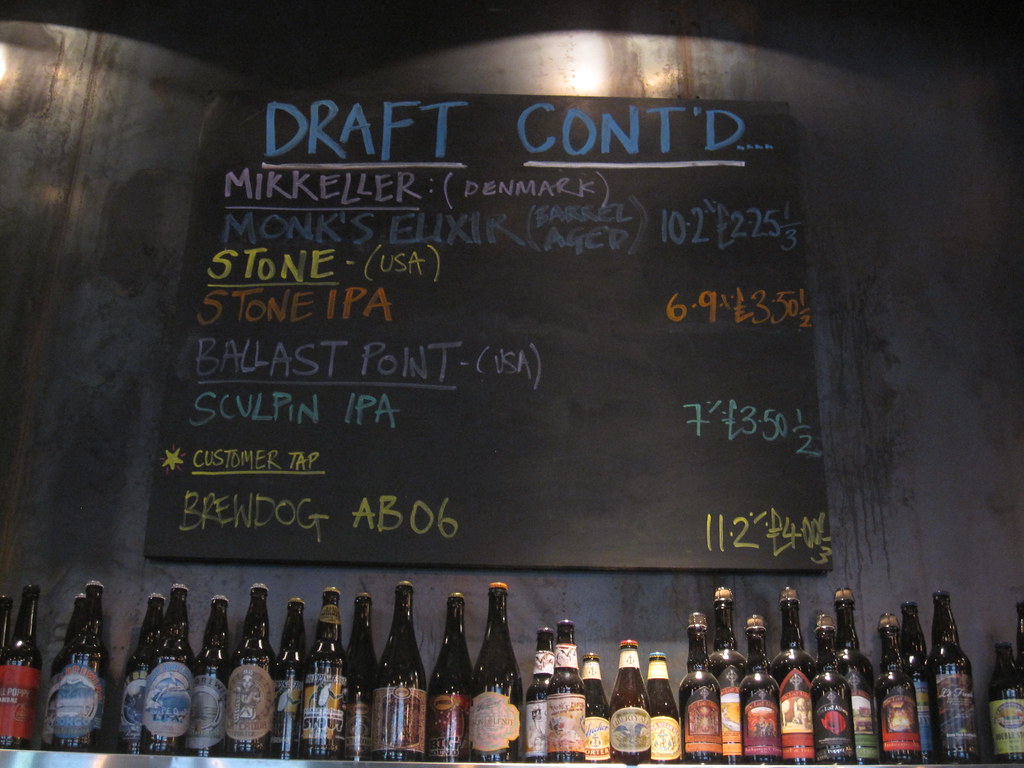 DRAFT CONT'D....
MIKKELLER: (DENMARK)
MONK'S ELIXIR (BARREL AGED) 10.2% £2.25 1/3
STONE - (USA)
STONE IPA 6.9% £3.50 1/2
BALLAST POINT - (USA)
SCULPIN IPA 7% £3.50 1/2
CUSTOMER TAP
BREWDOG AB06 11.2% £4.00 1/3